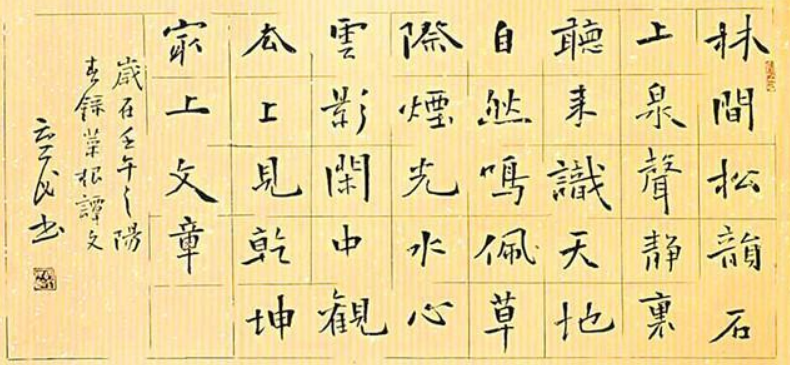 林間松韻石
上泉聲静裏
聽来識天地
自然鳴佩草
際煙光水心
雲影閑中觀
去上見乾坤
冣上文章
歲在壬午之陽
春録菜根譚文
书